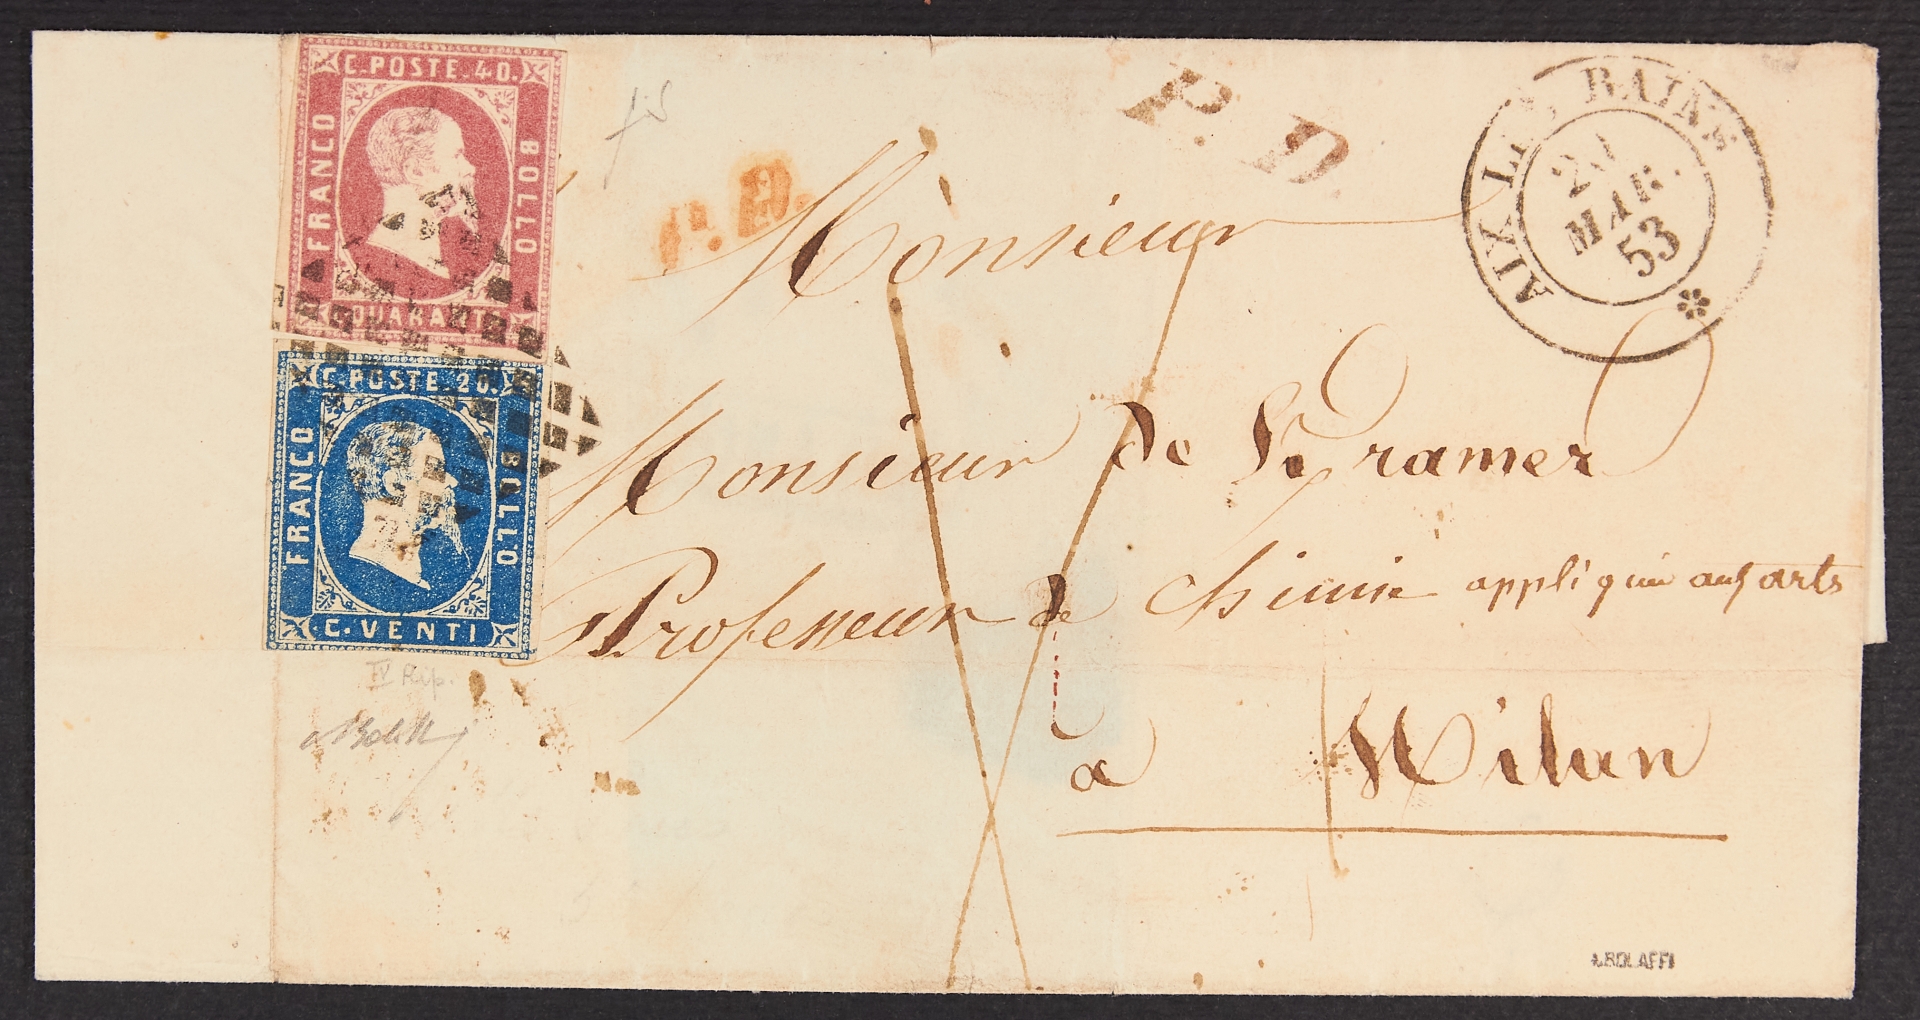 C. POSTE. 40.
FRANCO
BOLLO
C. QUARANTA
C. POSTE. 20.
FRANCO
BOLLO
C. VENTI
P. D.
P. D.
AIX LES BAINS
MAR.
53
Monsieur
Monsieur de Kramer
Professeur de Chimie appliquée aux arts
à Milan
IV Rip.
A. BOLAFFI